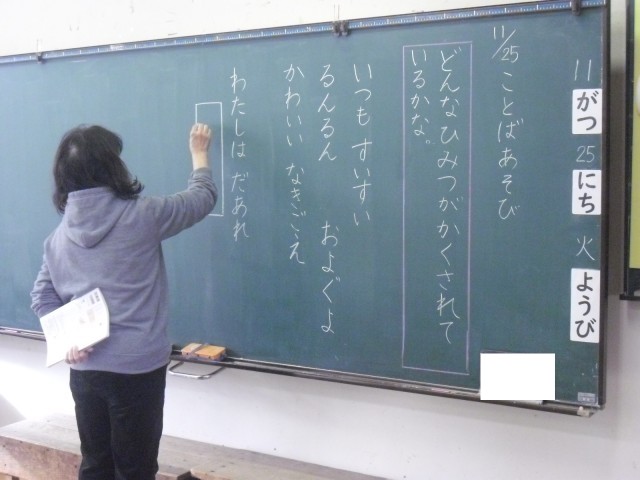 11がつ25にち火ようび
11/25 ことばあそび
どんなひみつがかくされて
いるかな。
いつも すいすい
るんるん およぐよ
かわいい なきごえ
わたしは だあれ